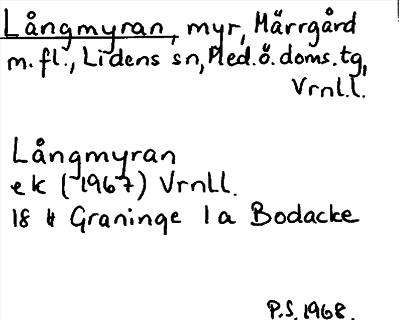 Långmyran, myr, Märrgård
m.fl., Lidens sn, Med.ö.doms.tg,
Vrnl.l.
Långmyran
ek (1967) Vrnll.
18 H Graninge 1a Bodacke
P.S. 1968.